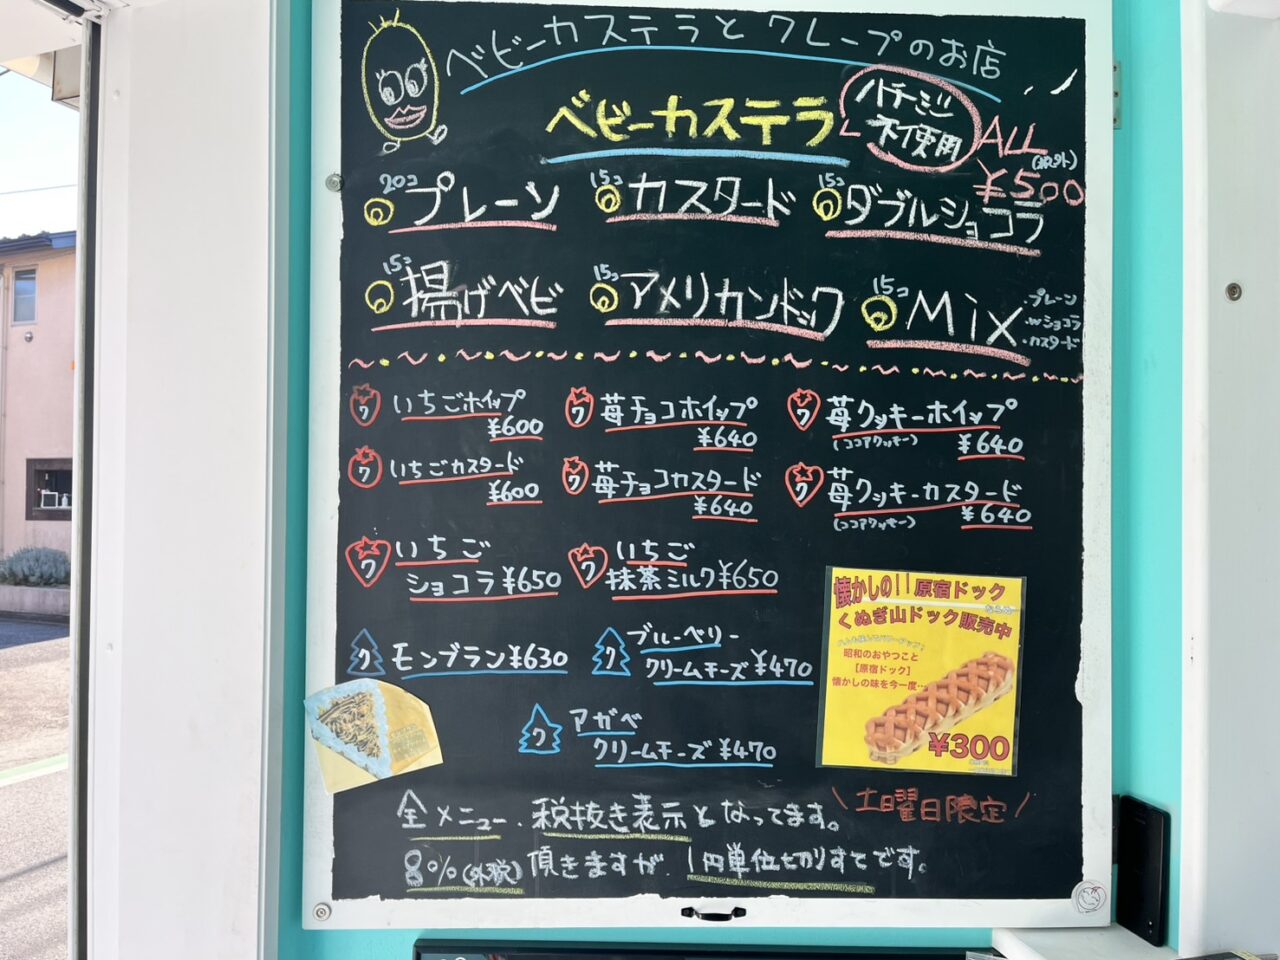 ベビーカステラとクレープのお店
ベビーカステラ
ハチミツ
不使用
ALL
(税外)
¥500
20コ プレーン
15コ カスタード
15コ ダブルショコラ
15コ 揚げベビ
15コ アメリカンドック
15コ Mix
・プレーン
・Wショコラ
・カスタード
ク いちごホイップ
¥600
ク 苺チョコホイップ
¥640
ク 苺クッキーホイップ
(ココアクッキー) ¥640
ク いちごカスタード
¥600
ク 苺チョコカスタード
¥640
ク 苺クッキーカスタード
(ココアクッキー) ¥640
ク いちご
ショコラ ¥650
ク いちご
抹茶ミルク ¥650
ク モンブラン ¥630
ク ブルーベリー
クリームチーズ ¥470
ク アガベ
クリームチーズ ¥470
懐かしの!!原宿ドック
ならぬ
くぬぎ山ドック販売中
昭和のおやつこと
【原宿ドック】
懐かしの味を今一度…
¥300
\土曜日限定/
全メニュー、税抜き表示となってます。
8%(外税)頂きますが、1円単位切りすてです。